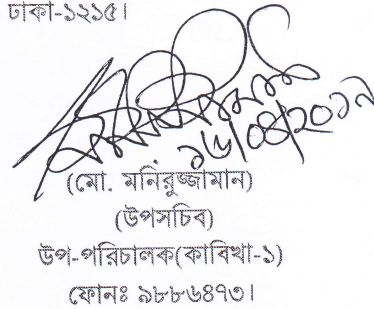 ঢাকা-১২১৫।
১৬/০৪/২০১৭
(মো. মনিরুজ্জামান)
(উপসচিব)
উপ-পরিচালক(কাবিখা-১)
ফোনঃ ৯৮৮৬৪৭৩।